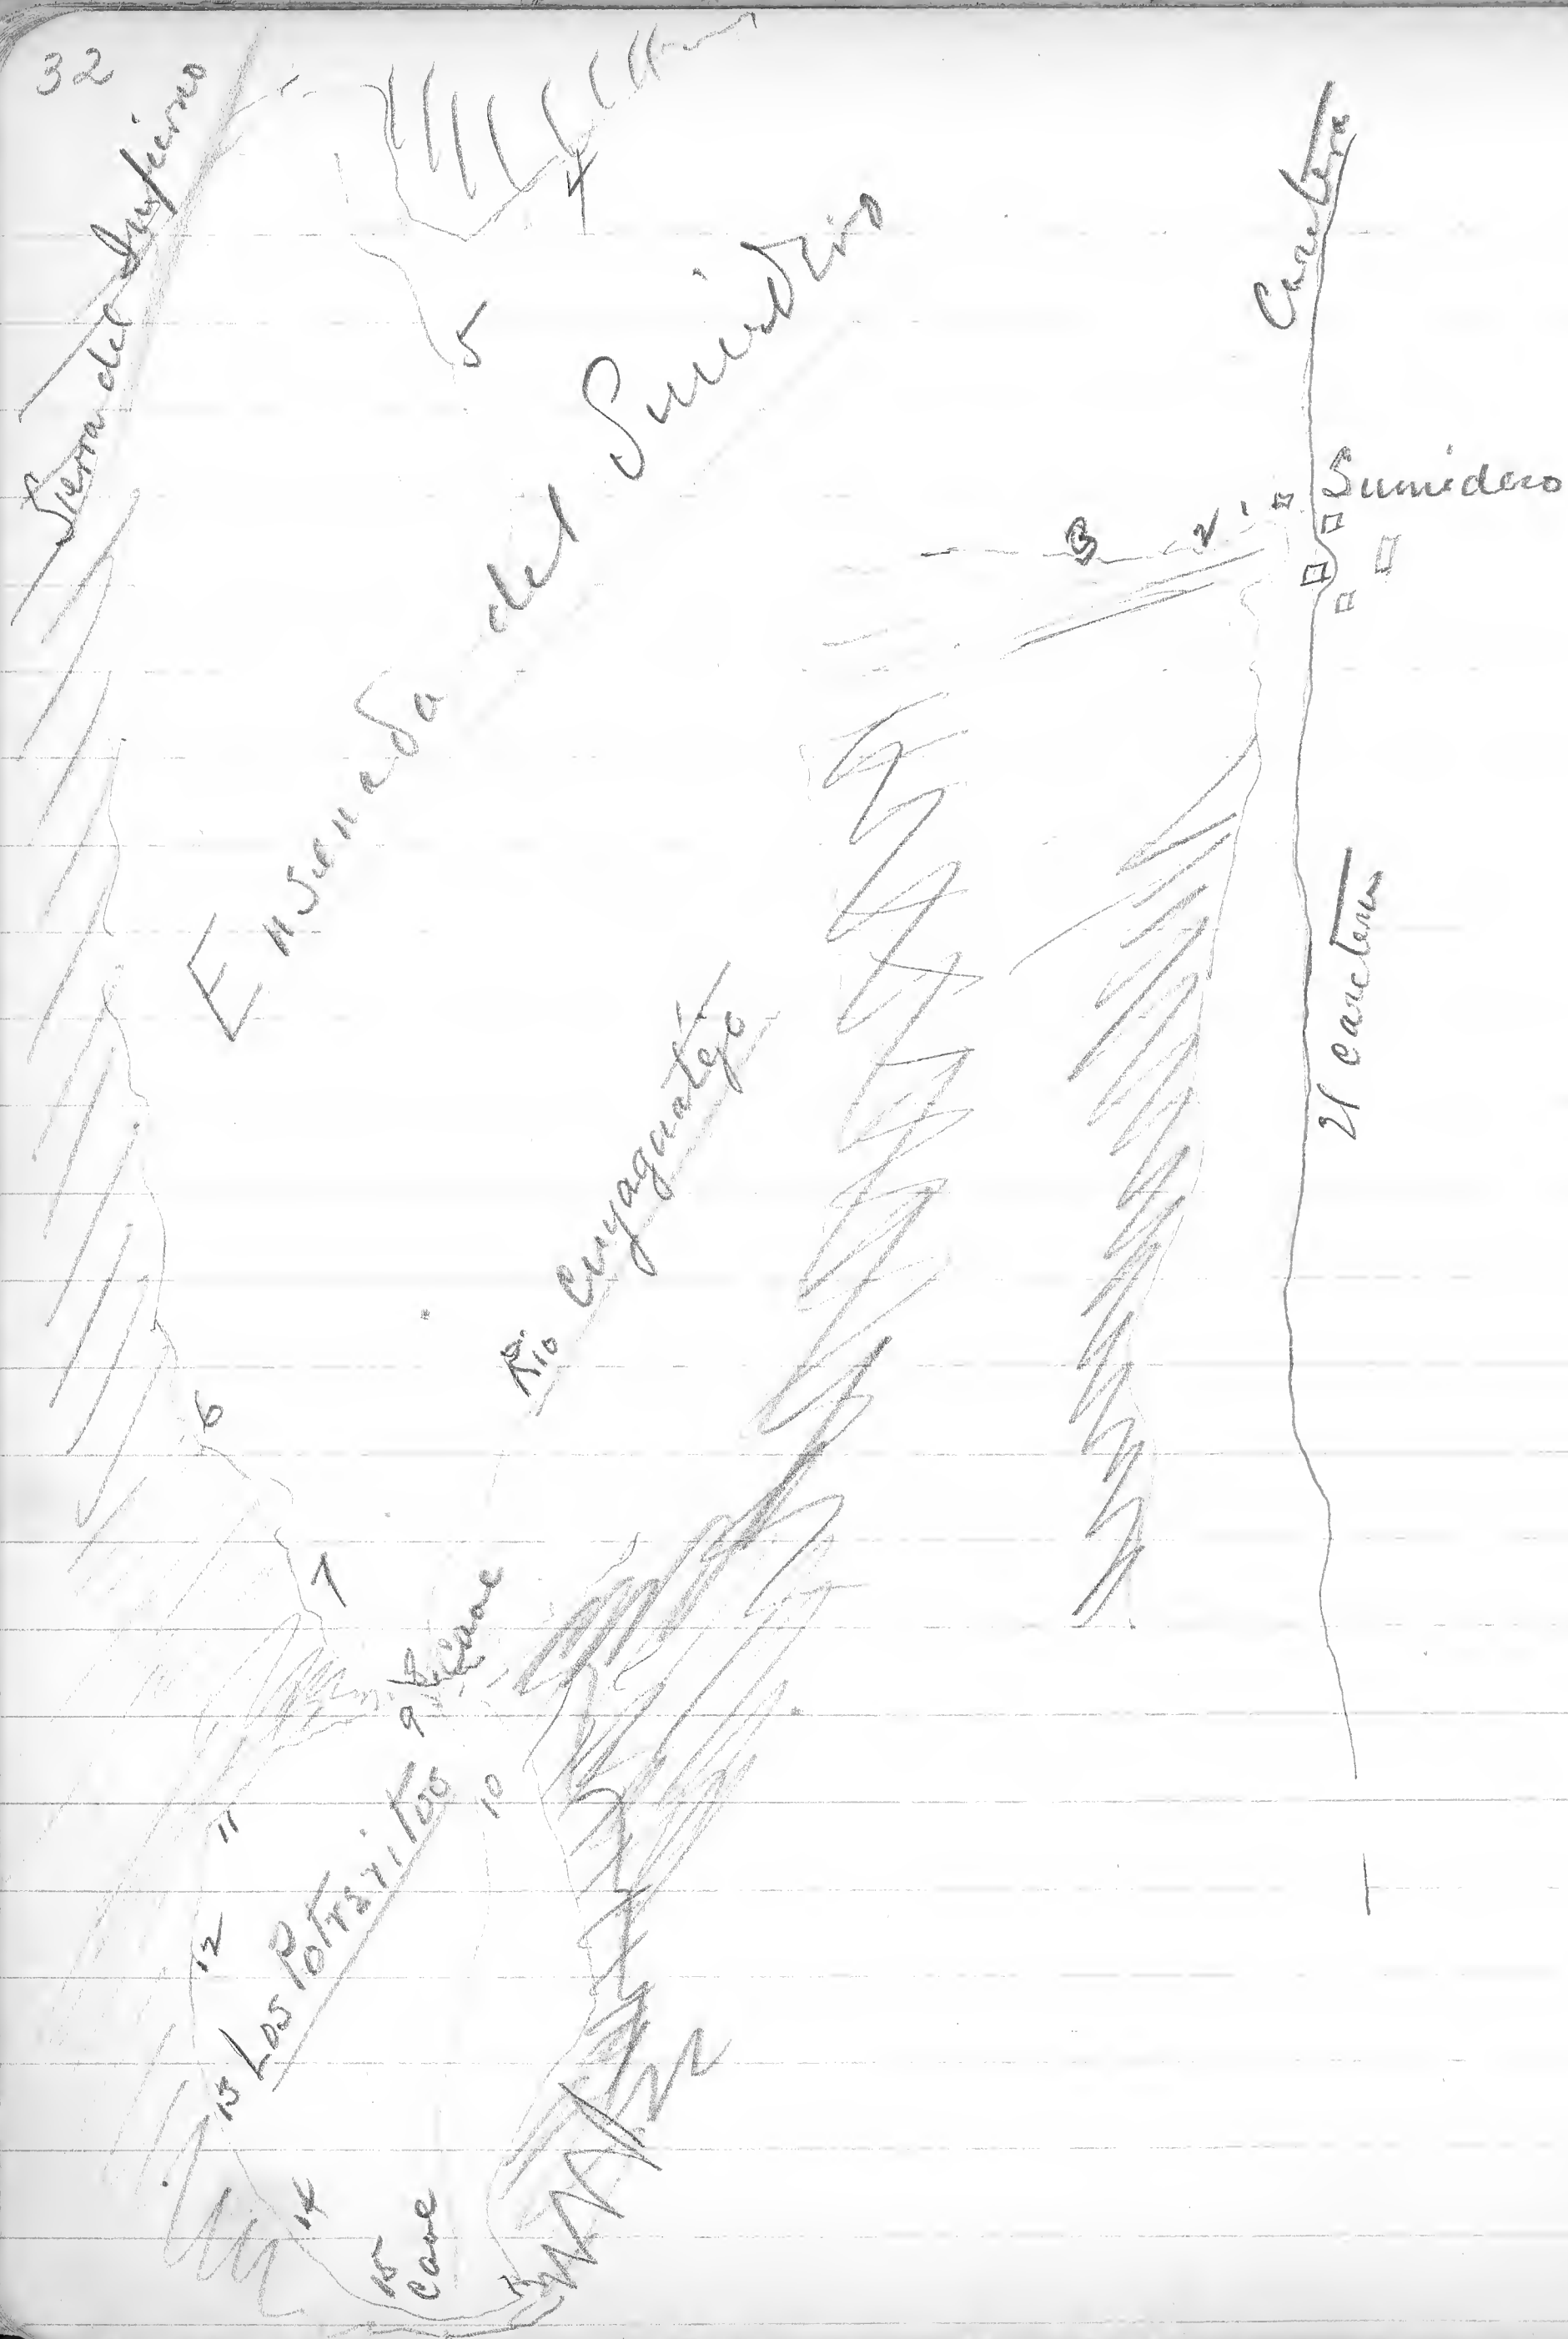 32
Sierra del Infierno
4
5
Ensenada del Sumidero
Caretera
Sumidero
1
2
3
El caretera
Rio Cuyaguatego
6
7
8 Cave
9
10
11
Los Potreritos
12
13
14
15
Cave